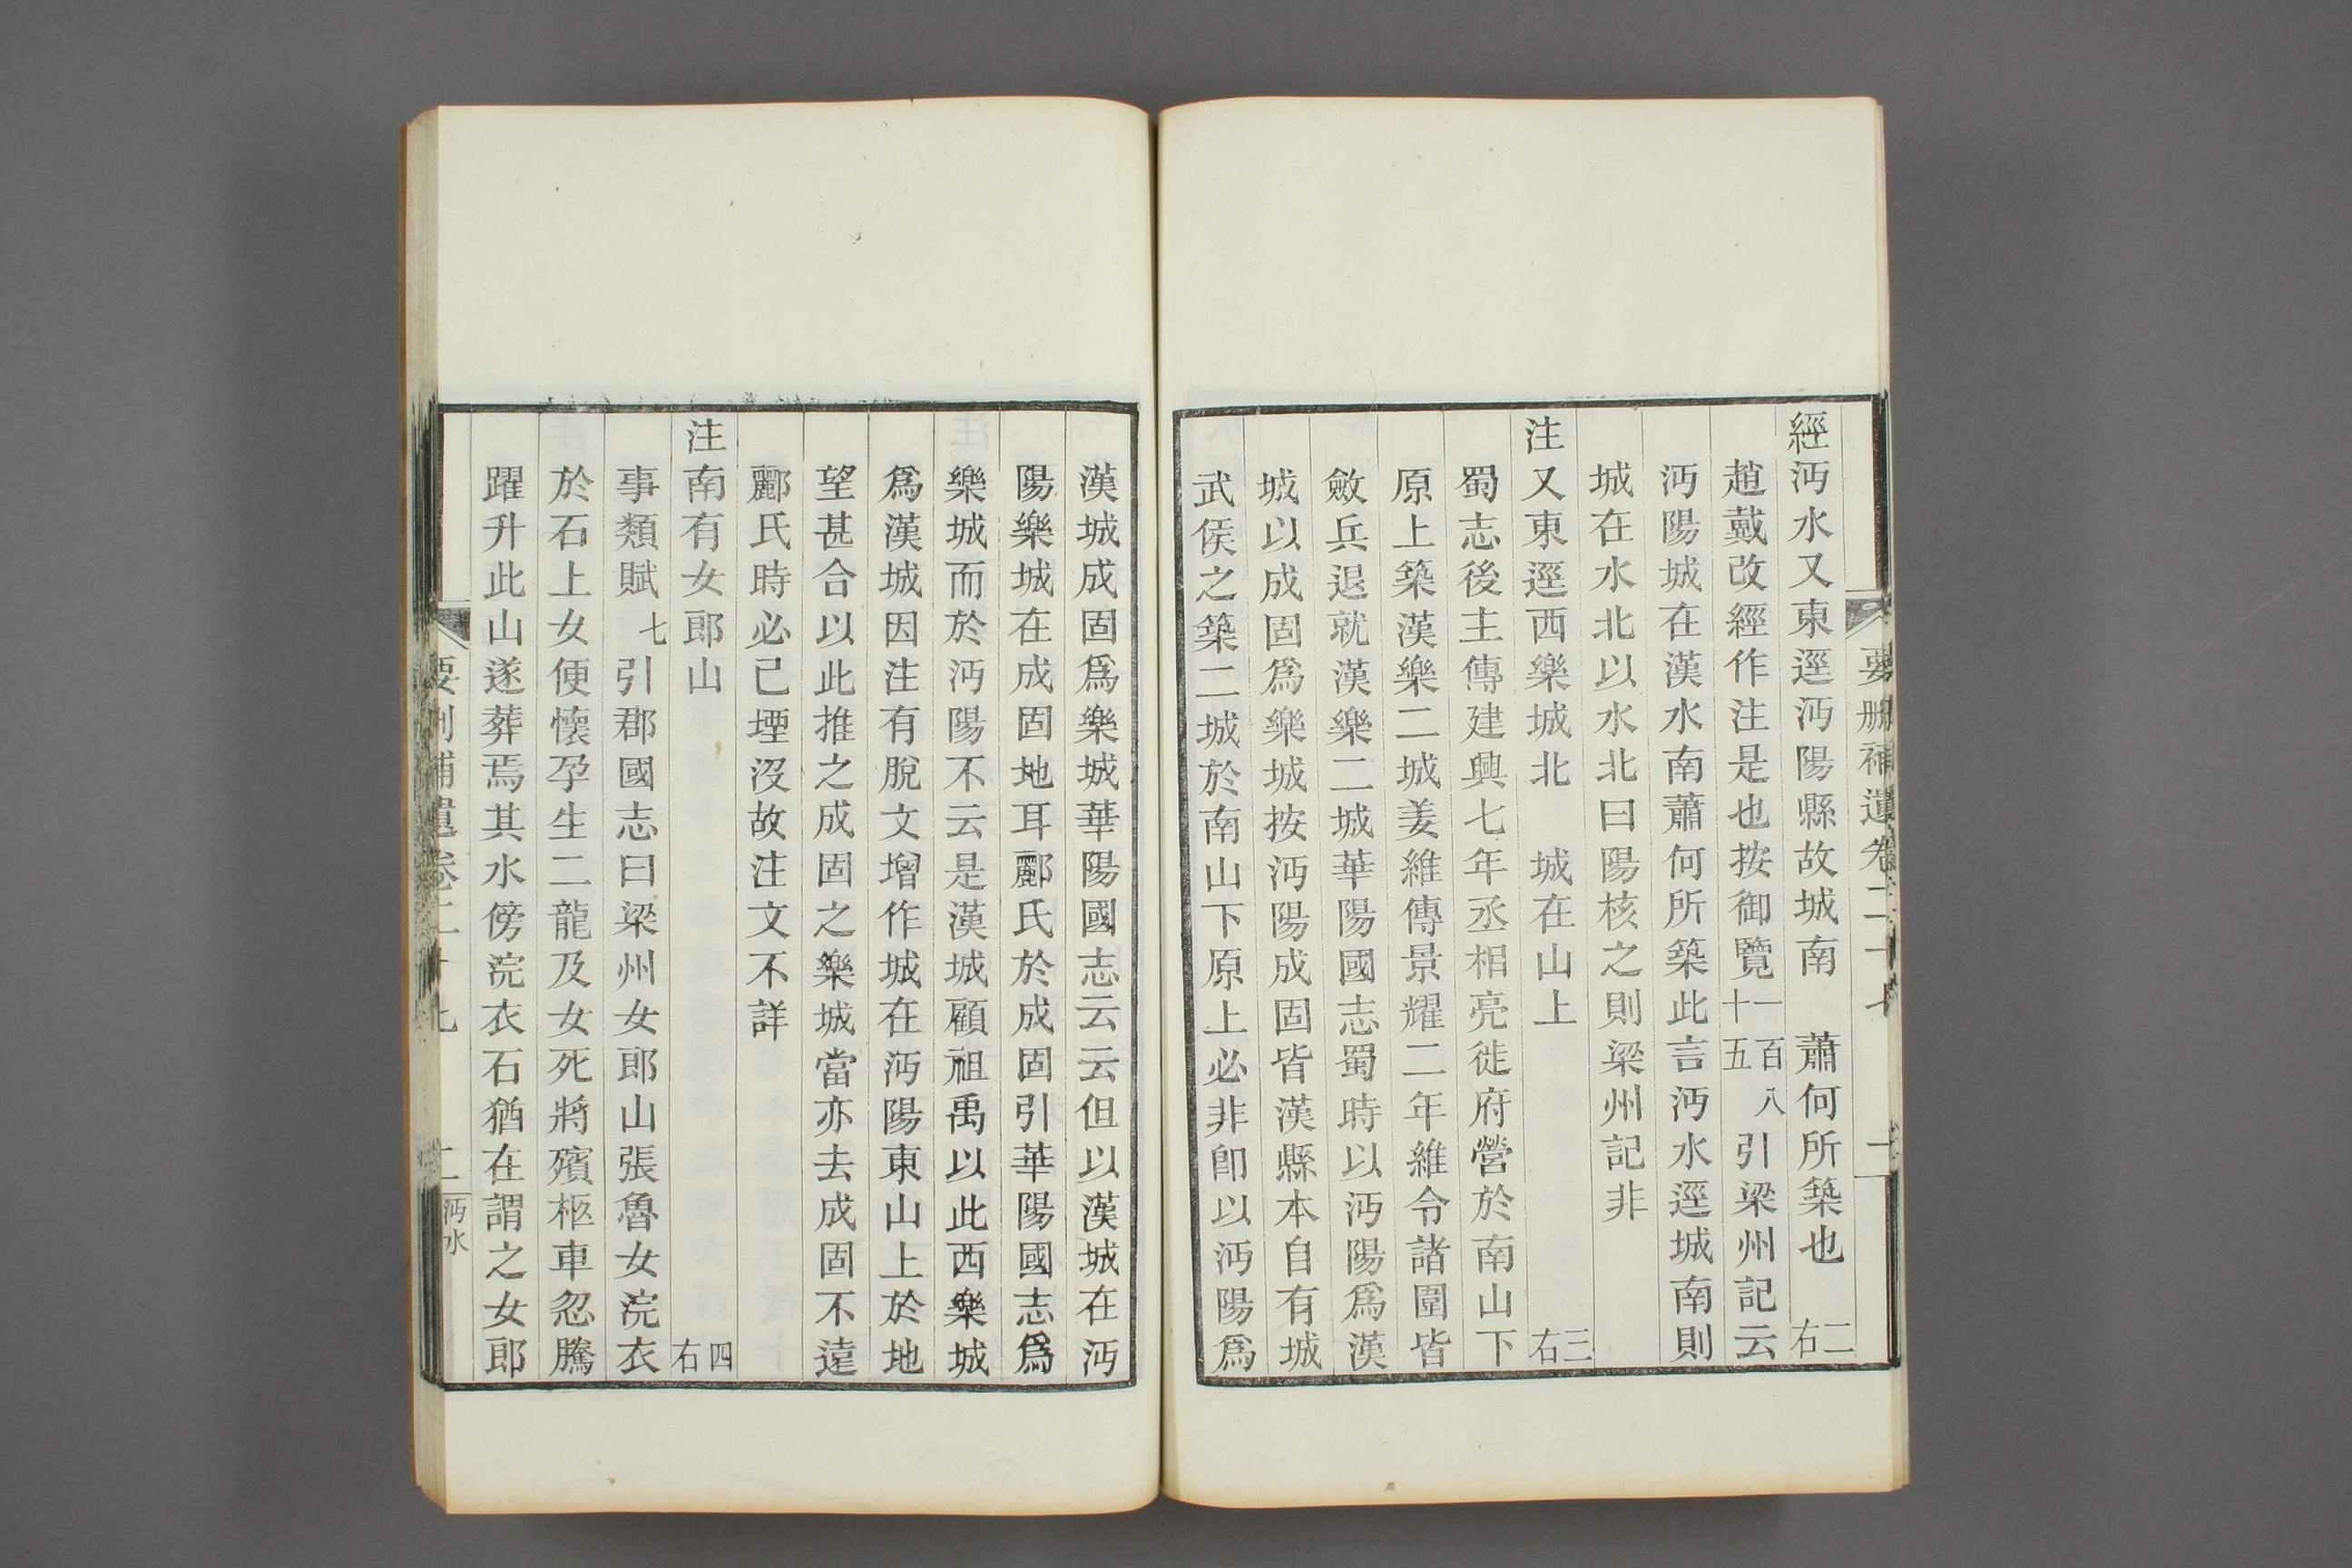 經沔水又東逕沔陽縣故城南　蕭何所築也二右
趙戴改經作注是也按御覽一百八十五引梁州記云
沔陽城在漢水南蕭何所築此言沔水逕城南則
城在水北以水北曰陽核之則梁州記非
注又東逕西樂城北　城在山上三右
蜀志後主傳建興七年丞相亮徙府營於南山下
原上築漢樂二城姜維傳景耀二年維令諸圍皆
斂兵退就漢樂二城華陽國志蜀時以沔陽爲漢
城以成固爲樂城按沔陽成固皆漢縣本自有城
武侯之築二城於南山下原上必非卽以沔陽爲
漢城成固爲樂城華陽國志云云但以漢城在沔
陽樂城在成固地耳酈氏於成固引華陽國志爲
樂城而於沔陽不云是漢城顧祖禹以此西樂城
爲漢城因注有脫文增作城在沔陽東山上於地
望甚合以此推之成固之樂城當亦去成固不遠
酈氏時必已堙沒故注文不詳
注南有女郎山四右
事類賦七引郡國志曰梁州女郎山張魯女浣衣
於石上女便懷孕生二龍及女死將殯柩車忽騰
躍升此山遂葬焉其水傍浣衣石猶在謂之女郎
要刪補遺卷二十七　二　沔水